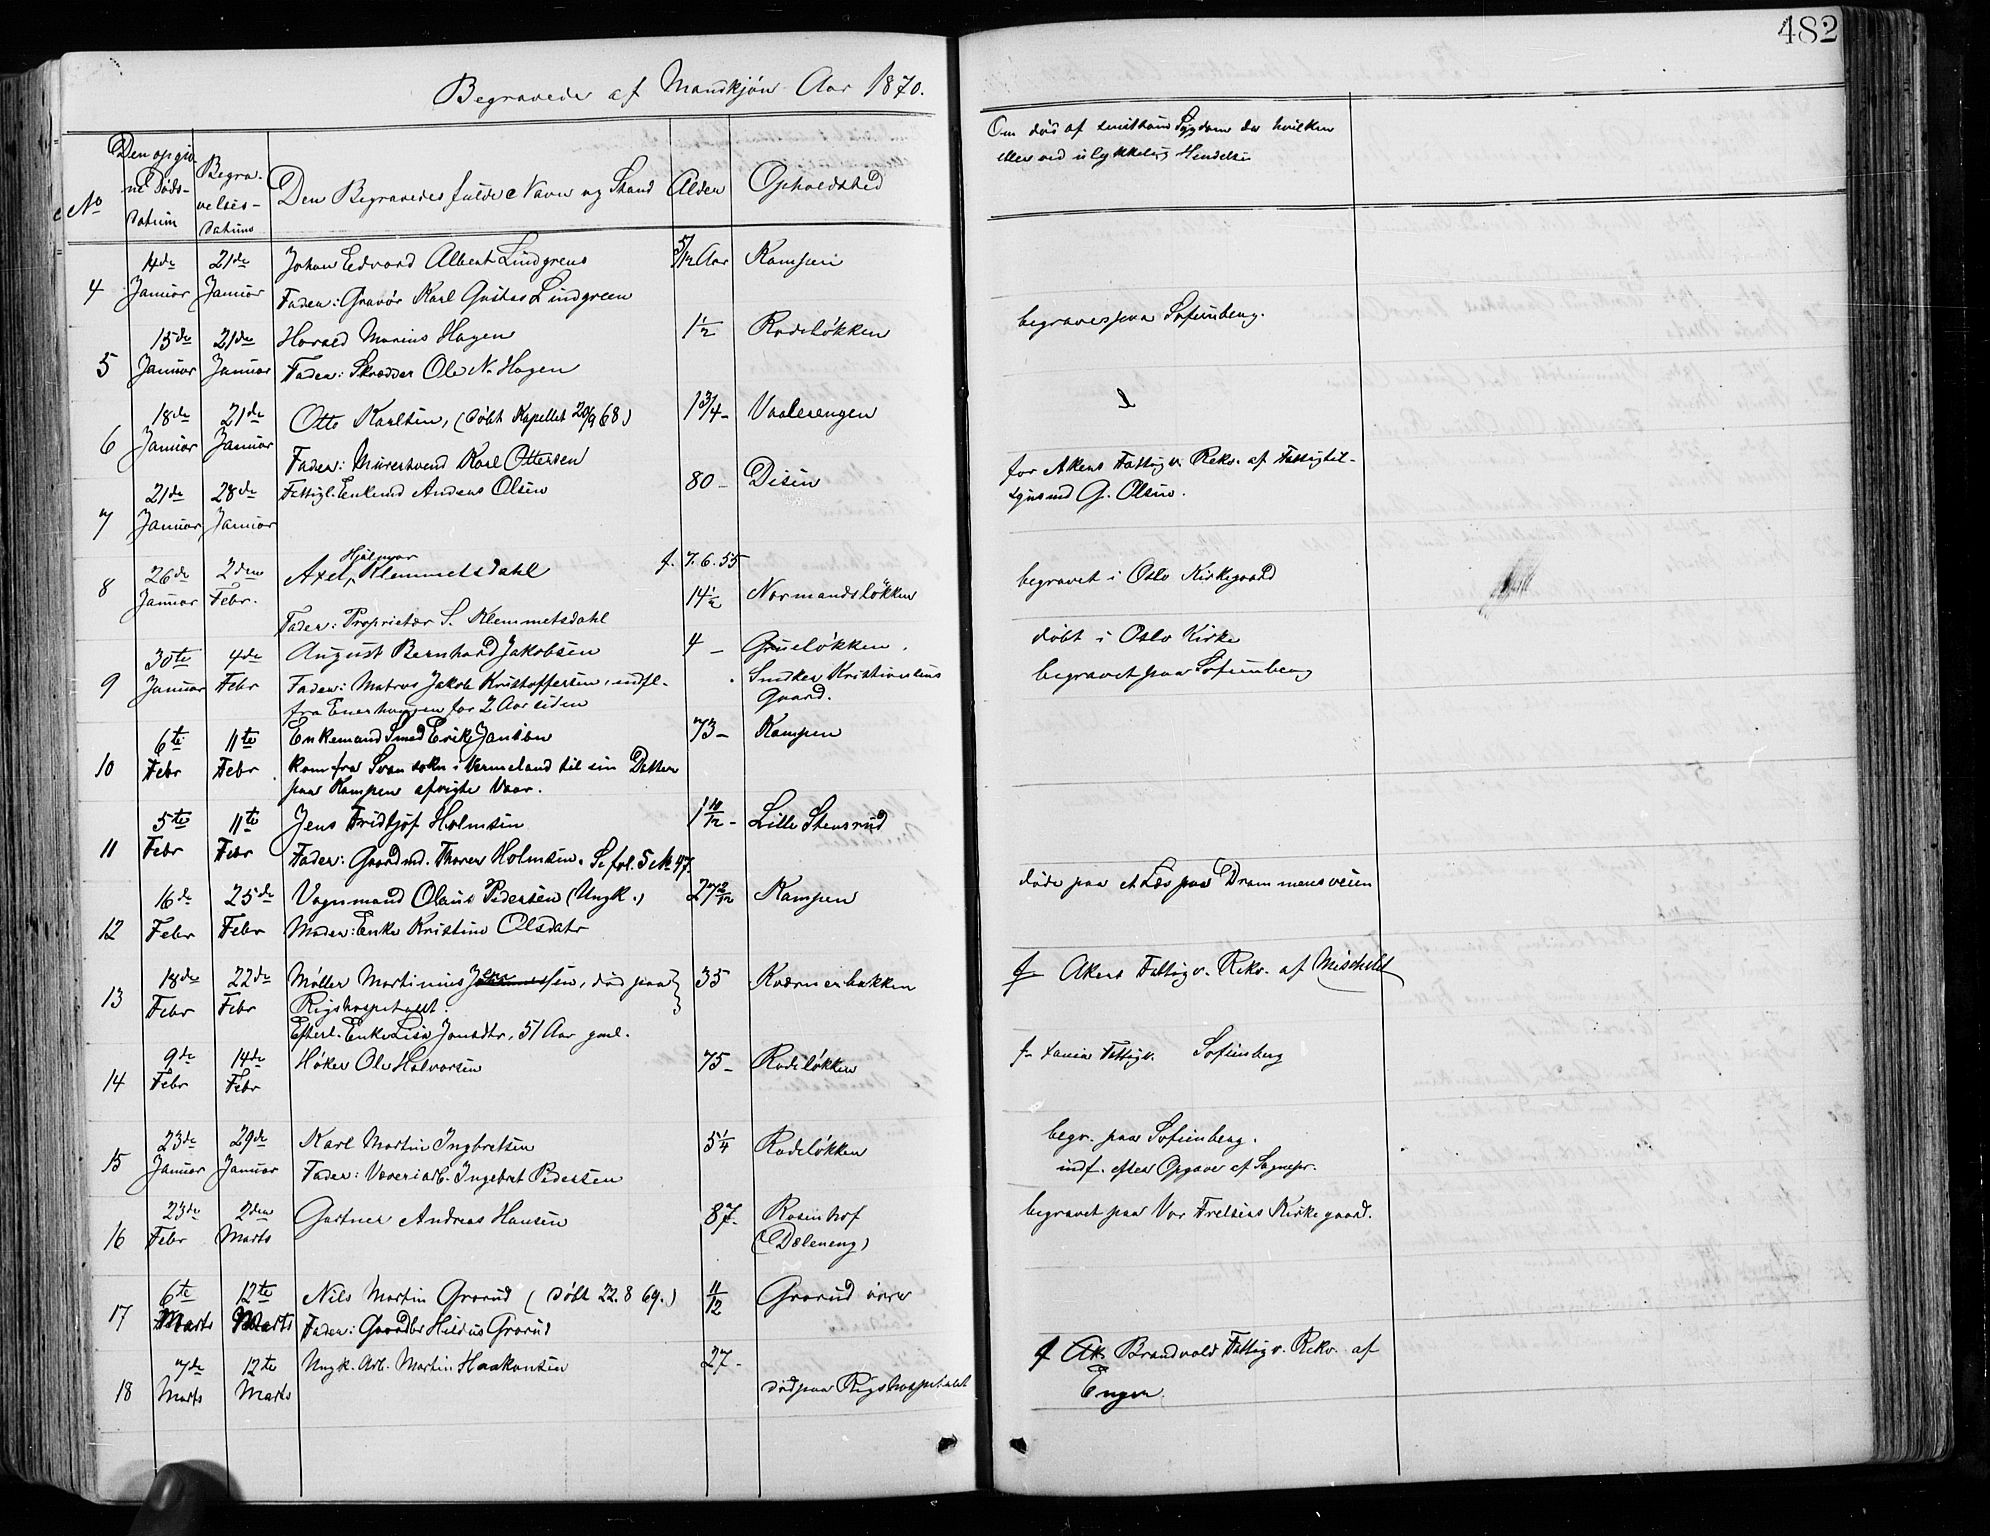 482
Begravede af Mandkjøn Aar 1870.
No
Den opgiv
ne Døds-
datum
Begra-
velses-
datum
Den Begravedes fulde Navn og Stand
Alder
Opholdsted
Om død af smitsom Sygdom da hvilken
eller ved ulykkelig Hendelse
4 14de Januar 21de Januar Johan Edvard Albert Lindgreen 5/12 Aar Kampen
Fader: Gravør Karl Gustav Lindgreen
5 15de Januar 21de Januar Harald Marius Hagen 1 1/2 Rodeløkken begraves paa Sofienberg.
Fader: Skrædder Ole N. Hagen
6 18de Januar 21de Januar Otto Karlsen, (døbt Kapellet 20/9 68) 1 3/4 - Vaalerengen
Fader: Murersvend Karl Ottersen
7 21de Januar 28de Januar Fattigl. Enkemd Anders Olsen 80 - Disen for Akers Fattigv. Rekv. af Fattigtil-
synsmd G. Olsen.
8 26de Januar 2den Febr. Axel Hjalmar Klemmetsdahl f. 7.6.55
14 1/2 Normandsløkken begravet i Oslo Kirkegaard
Fader: Proprietær S. Klemmetsdahl
9 30te Januar 4de Febr August Bernhard Jakobsen 4 - Grueløkken. døbt i Oslo Kirke
Fader: Matros Jakob Kristoffersen, indfl. Snedker Kristiansens begravet paa Sofienberg
fra Enerhaugen for 2 Aar siden Gaard.
10 6te Febr 11te Febr Enkemand Smed Erik Jansen 73 - Kampen
kom fra Svanskog i Vermeland til sin Datter
paa Kampen afvigte Vaar.
11 5te Febr 11te Febr Jens Fridtjof Holmsen 1 10/12 - Lille Stensrud
Fader: Gaardmd. Thorer Holmsen. Se fol. 5 No 47.
12 16de Febr 25de Febr Vognmand Olaus Pedersen (Ungk.) 27 2/12 Kampen døde paa et Læs paa Drammensveien
Moder: Enke Kristine Olsdatr
13 18de Febr 22de Febr Møller Martinius Jensen, død paa 35 Kværnerbakken f Akers Fattigv. Rekv. af Mischelet
Rigshospitalet.
Efterl. Enke Lisa Jonsdtr, 51 Aar gml.
14 9de Febr 14de Febr Høker Ole Halvorsen 75 - Rodeløkken f. samme Fattigv. Sofienberg
15 23de Januar 29de Januar Karl Martin Ingbretsen 5 1/4 Rodeløkken begr. paa Sofienberg.
Fader: Væveriarb. Ingebret Pedersen indf. efter Opgave af Sognepr.
16 23de Febr 2den Marts Gartner Andreas Hansen 87. Rosenhof begravet paa Vor Frelsers Kirkegaard.
(Dæleneng)
17 6te Marts 12te Marts Nils Martin Grorud (døbt 22.8 69.) 11/12 Grorud øvre
Fader: Gaardbr Hildus Grorud
18 7de Marts 12te Marts Ungk. Arb. Martin Haakonsen 27 - f Ak. Brandvold Fattigv. Rekv. af
død paa Rigshospitalet Engen.